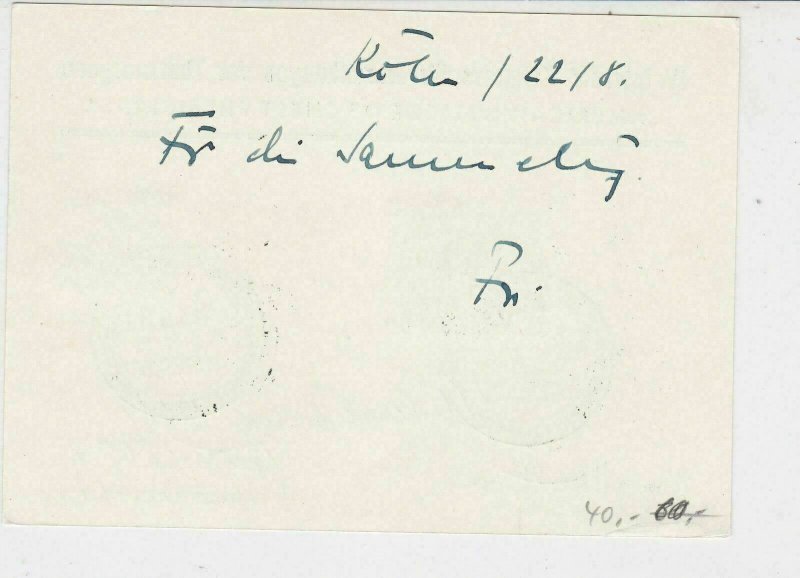 Köln / 22/8.
Für die Sammelung.
Fri.
40,- 60,-